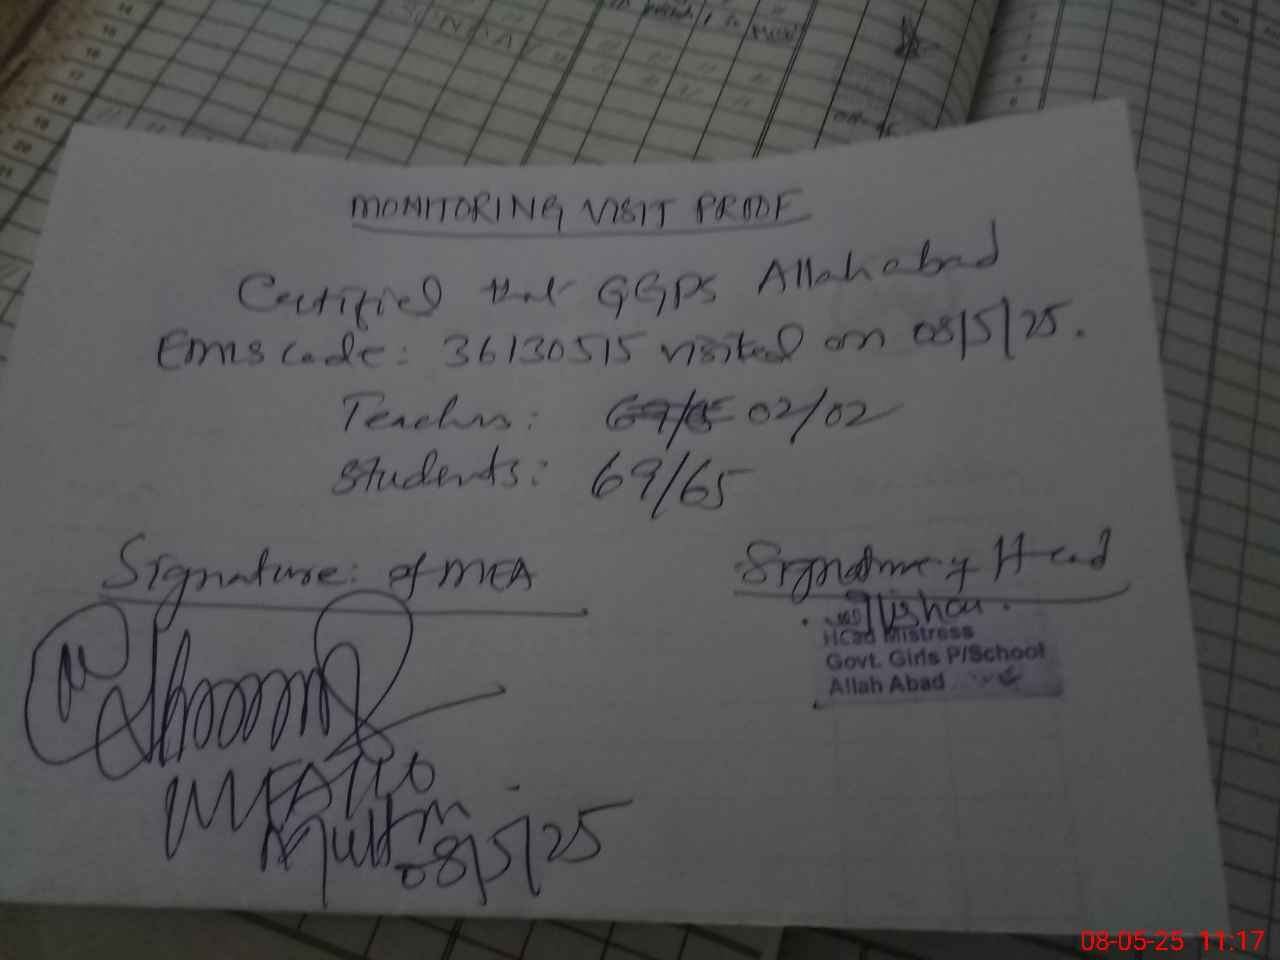 MONITORING VISIT PROOF
Certified that GGPS Allahabad
EMIS code: 36130515 visited on 08/5/25.
Teachers: 69/65 02/02
Students: 69/65
Signature: of MEA
Signature of Head
Head Mistress
Govt. Girls P/School
Allah Abad
MEA
Multan
08/5/25
14
15
16
17
18
19
20
21
08-05-25 11:17